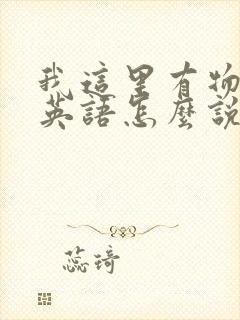 我這里有物
英語怎麼說
蕊琦